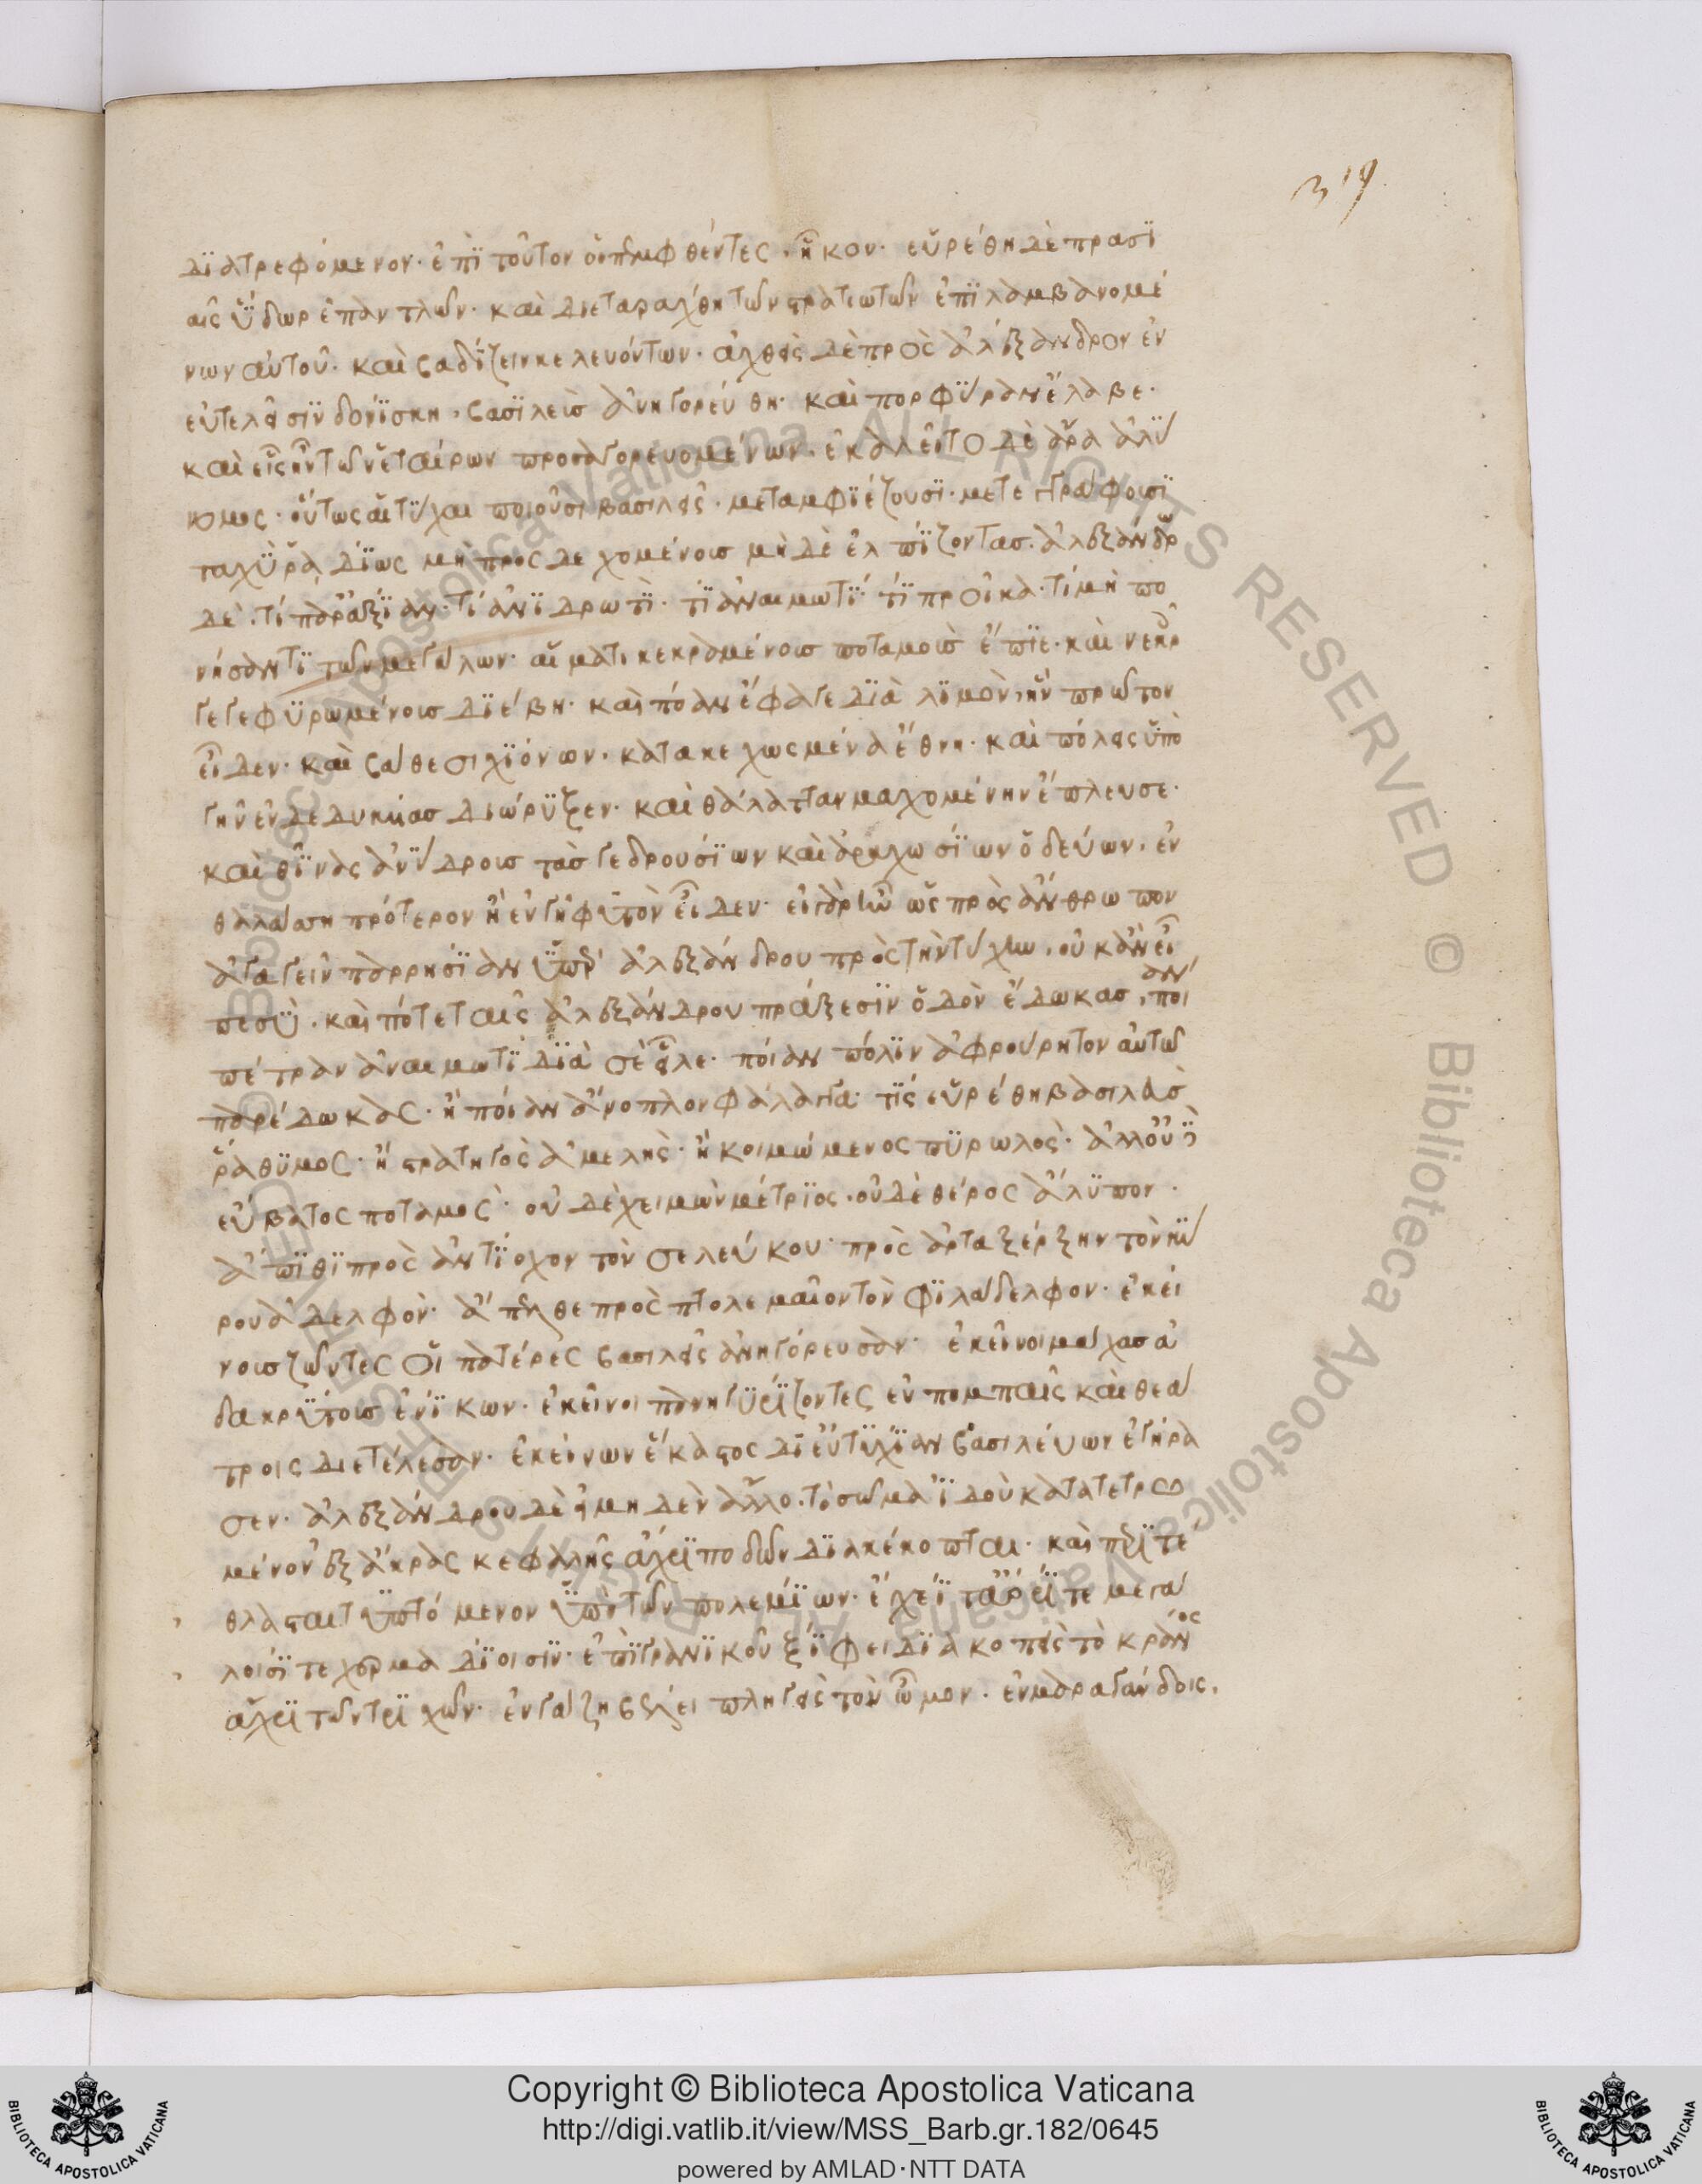 319
διατρεφόμενον· ἐπὶ τοῦτον οἱ πεμφθέντες, ἧκον· εὑρέθη δὲ πρασϊ
αῖς ὕδωρ ἐπαντλῶν· καὶ διεταράχθη τῶν στρατιωτῶν ἐπιλαμβανομέ
νων αὐτοῦ· καὶ βαδίζειν κελευόντων· ἀχθεὶς δὲ πρὸς ἀλέξανδρον ἐν
εὐτελεῖ σινδονίσκη, βασιλεὺς ἀνηγορεύθη· καὶ πορφύραν ἔλαβε·
καὶ εἷς ἦν τῶν ἑταίρων προσαγορευομένων· ἐκαλεῖτο δὲ ἄρα ἀλύ
νομος· οὕτως αἱ τύχαι ποιοῦσι βασιλεῖς· μεταμφιέζουσι· μετεγγράφουσι
ταχὺ ῥαδίως μὴ προσδεχομένοις μὴδὲ ἐλπίζοντας· ἀλεξάνδρω
δὲ· τί παρ' ἀξίαν· τί ἀνιδρωτὶ· τί ἀναιμωτί· τί προῖκα· τί μὴ πο
νήσαντι τῶν μεγάλων· αἵματι κεκραμένοις ποταμοὺς ἔπιε· καὶ νεκροῖς
γεγεφυρωμένοις διέβη· καὶ πόαν ἔφαγε διὰ λιμὸν, ἣν πρῶτον
εἶδεν· καὶ βάθεσι χιόνων· κατακεχωσμένα ἔθνη· καὶ πόλεις ὑπὸ
γῆν ἐνδεδυκυίας διώρυξεν· καὶ θάλατταν μαχομένην ἔπλευσε·
καὶ θῖνας ἀνύδροις τὰς γεδρουσίων καὶ ἀραχωσίων ὁδεύων· ἐν
θαλάσση πρότερον ἢ ἐν γῆ φυτὸν εἶδεν· εἰ γὰρ ἦν ὡς πρὸς ἄνθρωπον
ἀγαγεῖν παρρησίαν ὑπὲρ ἀλεξάνδρου πρὸς τὴν τύχην, οὐκ ἂν εἶ
πε σὺ· καὶ πότε ταῖς ἀλεξάνδρου πράξεσιν ὁδὸν ἔδωκας, ποίαν
πέτραν ἀναιμωτὶ διὰ σὲ εἷλε· ποίαν πόλιν ἀφρούρητον αὐτῶ
παρέδωκας· ἢ ποίαν ἄνοπλον φάλαγγα· τίς εὑρέθη βασιλεὺς
ῥάθυμος· ἢ στρατηγὸς ἀμελής· ἢ κοιμώμενος πυρωλός· ἀλλ' οὐδ'
εὔβατος ποταμός· οὐδὲ χειμὼν μέτριος· οὐδὲ θέρος ἄλυπον·
ἄπιθι πρὸς ἀντίοχον τὸν σελεύκου· πρὸς ἀρταξέρξην τὸν κύ
ρου ἀδελφὸν· ἄπελθε πρὸς πτολεμαῖον τὸν φιλάδελφον· ἐκεί
νοις ζῶντες οἱ πατέρες βασιλεῖς ἀνηγόρευσαν· ἐκεῖνοι μάχας ἀ
δακρύτοις ἐνίκων· ἐκεῖνοι πανηγυρίζοντες ἐν πομπαῖς καὶ θεά
τροις διετέλεσαν· ἐκείνων ἕκαστος δι' εὐτυχίαν βασιλεύων ἐγήρα
σεν· ἀλεξάνδρου δὲ εἰ μηδὲν ἄλλο· τὸ σῶμα ἰδοὺ κατατετρω
μένον ἐξ ἄκρας κεφαλῆς ἄχρι ποδῶν διακέκοπται· καὶ περιτέ
θλασται τυπτόμενον ὑπὸ τῶν πολεμίων· ἔγχεΐ τ' ἄορί τε μεγά
λοισί τε χερμαδίοισιν· ἐπὶ γρανικοῦ ξίφει διακοπεὶς τὸ κράνος
ἄχρι τῶν τριχῶν· ἐν γάζη βέλει πληγεὶς τὸν ὦμον· ἐν μαραγάνδοις,
Copyright © Biblioteca Apostolica Vaticana
http://digi.vatlib.it/view/MSS_Barb.gr.182/0645
powered by AMLAD·NTT DATA